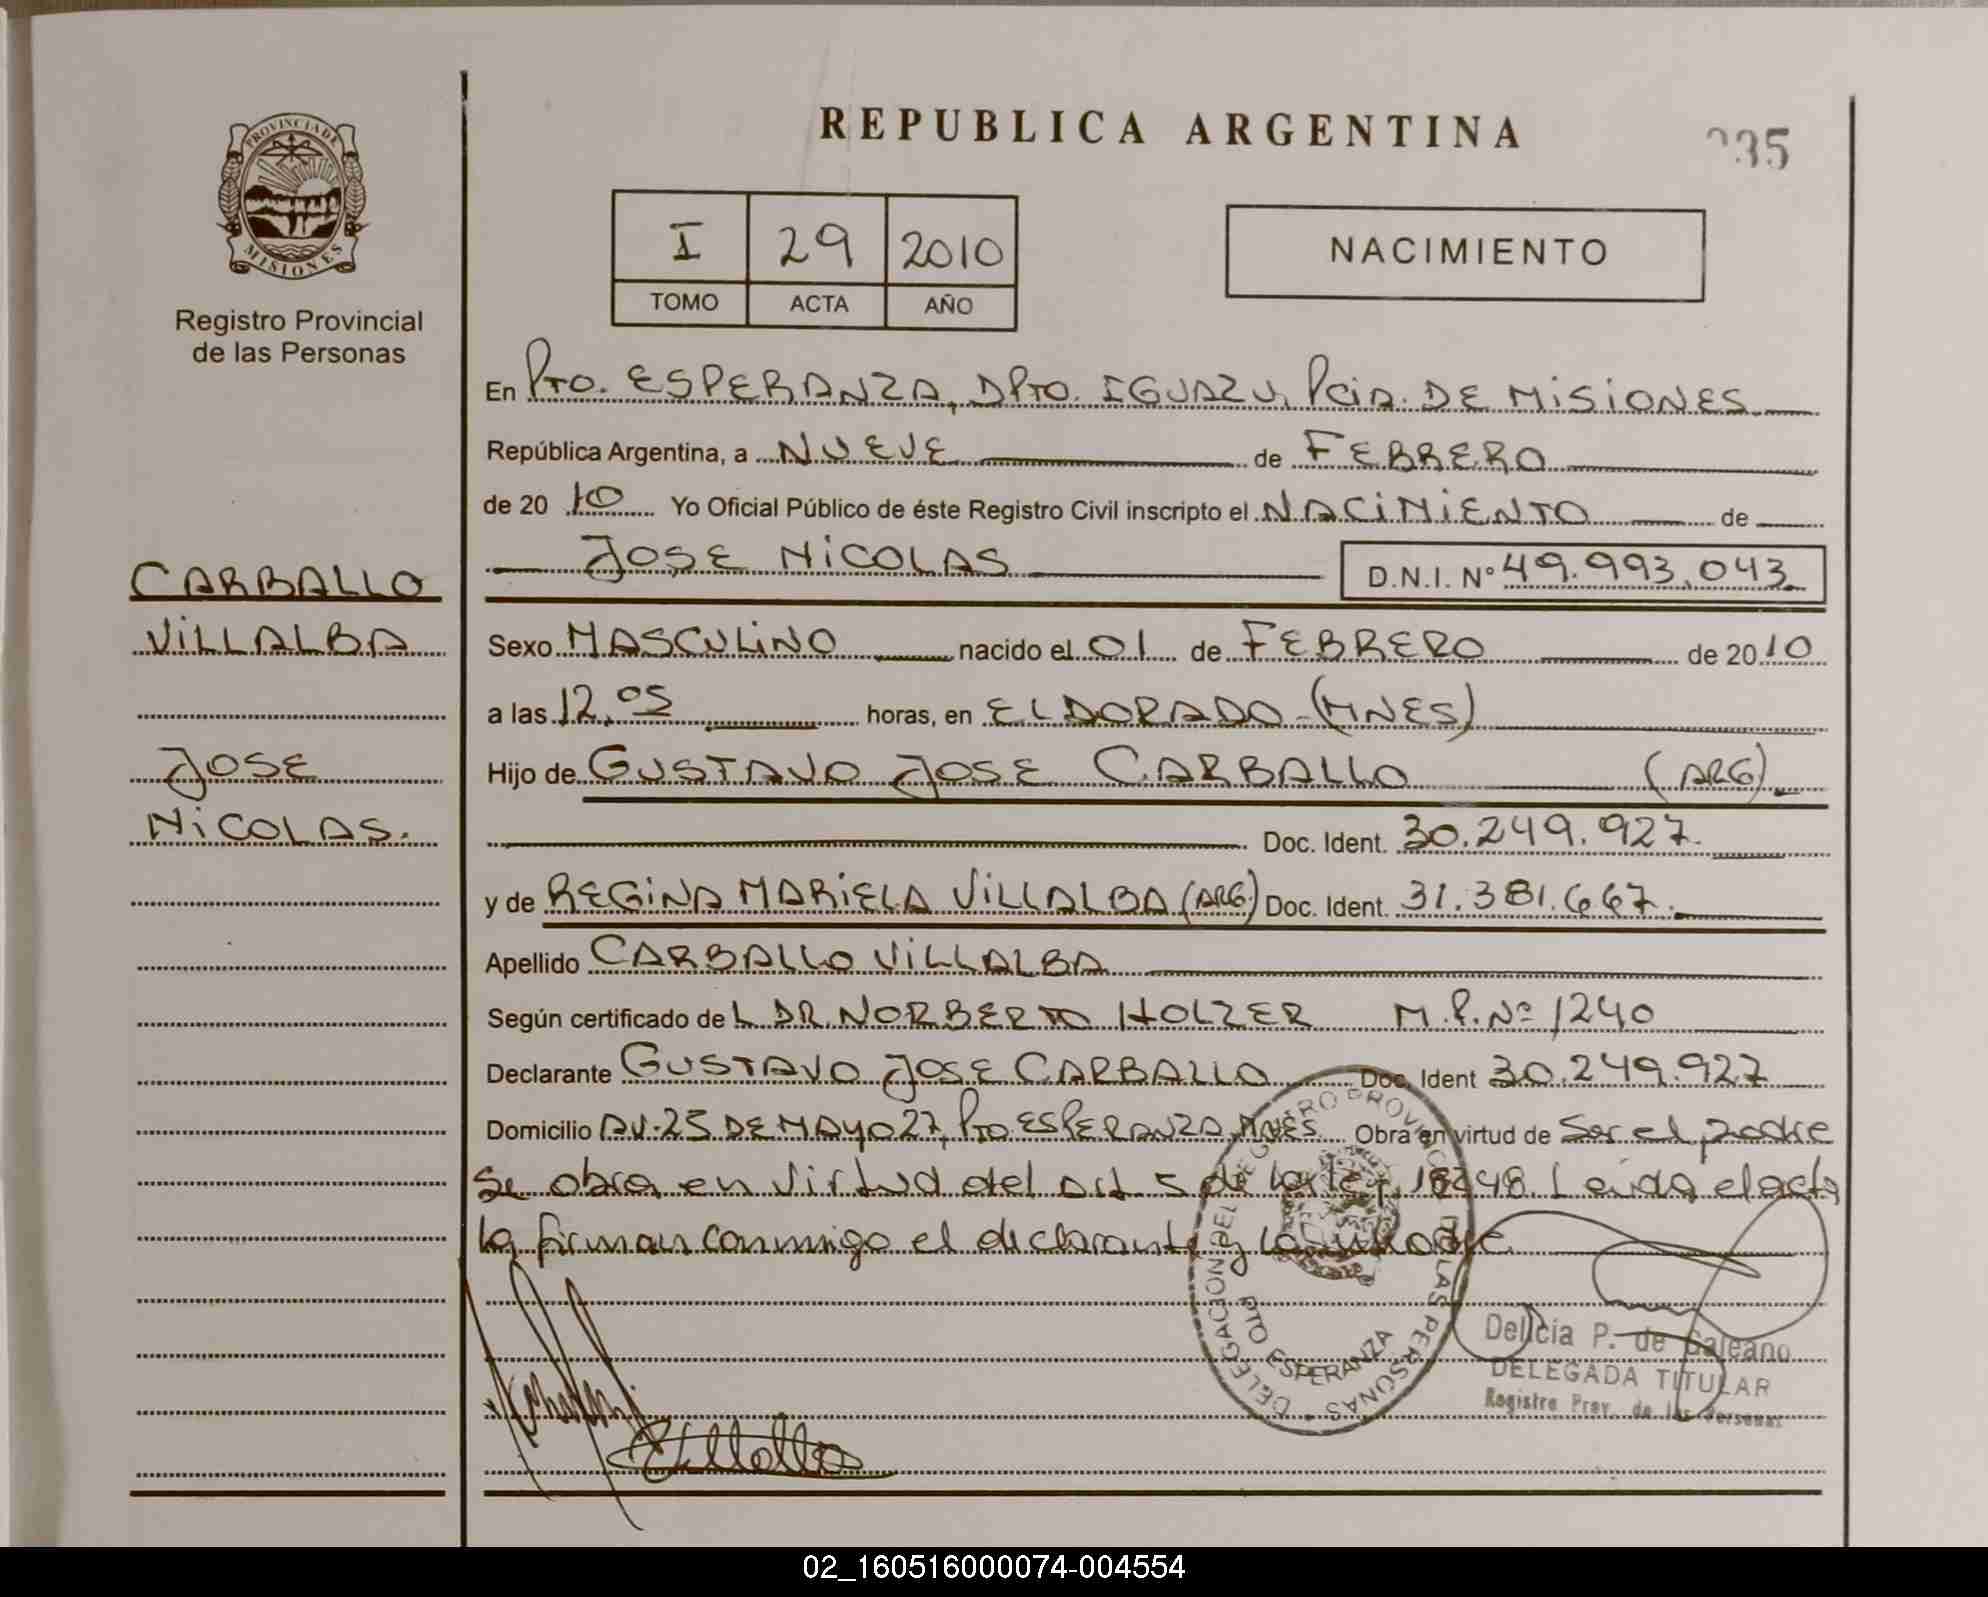 REPUBLICA ARGENTINA
335
PROVINCIA DE
MISIONES
Registro Provincial
de las Personas
I 29 2010
TOMO ACTA AÑO
NACIMIENTO
En Pto. ESPERANZA, DPTO. IGUAZU, Pcia. DE MISIONES
República Argentina, a NUEVE de FEBRERO
de 2010 Yo Oficial Público de éste Registro Civil inscripto el NACIMIENTO de
JOSE NICOLAS D.N.I. N° 49.993.043
CARBALLO
VILLALBA
JOSE
NICOLAS.
Sexo MASCULINO nacido el 01 de FEBRERO de 2010
a las 12,05 horas, en ELDORADO-(MNES)
Hijo de GUSTAVO JOSE CARBALLO (ARG)
Doc. Ident. 30.249.927.
y de REGINA MARIELA VILLALBA (ARG) Doc. Ident. 31.381.667.
Apellido CARBALLO VILLALBA
Según certificado de DR. NORBERTO HOLZER M.P. Nº 1240
Declarante GUSTAVO JOSE CARBALLO Doc. Ident 30.249.927
Domicilio AV. 25 DE MAYO 27, Pto ESPERANZA, MNES Obra en virtud de Ser el padre
Se obra en virtud del art 5 de la ley 18248. Leida el acta
la firman conmigo el declarante y la madre.
DELEGACION DEL REGISTRO PROVINCIAL DE LAS PERSONAS
PTO ESPERANZA
Delicia P. de Galeano
DELEGADA TITULAR
Registro Prov. de las Personas
02_160516000074-004554